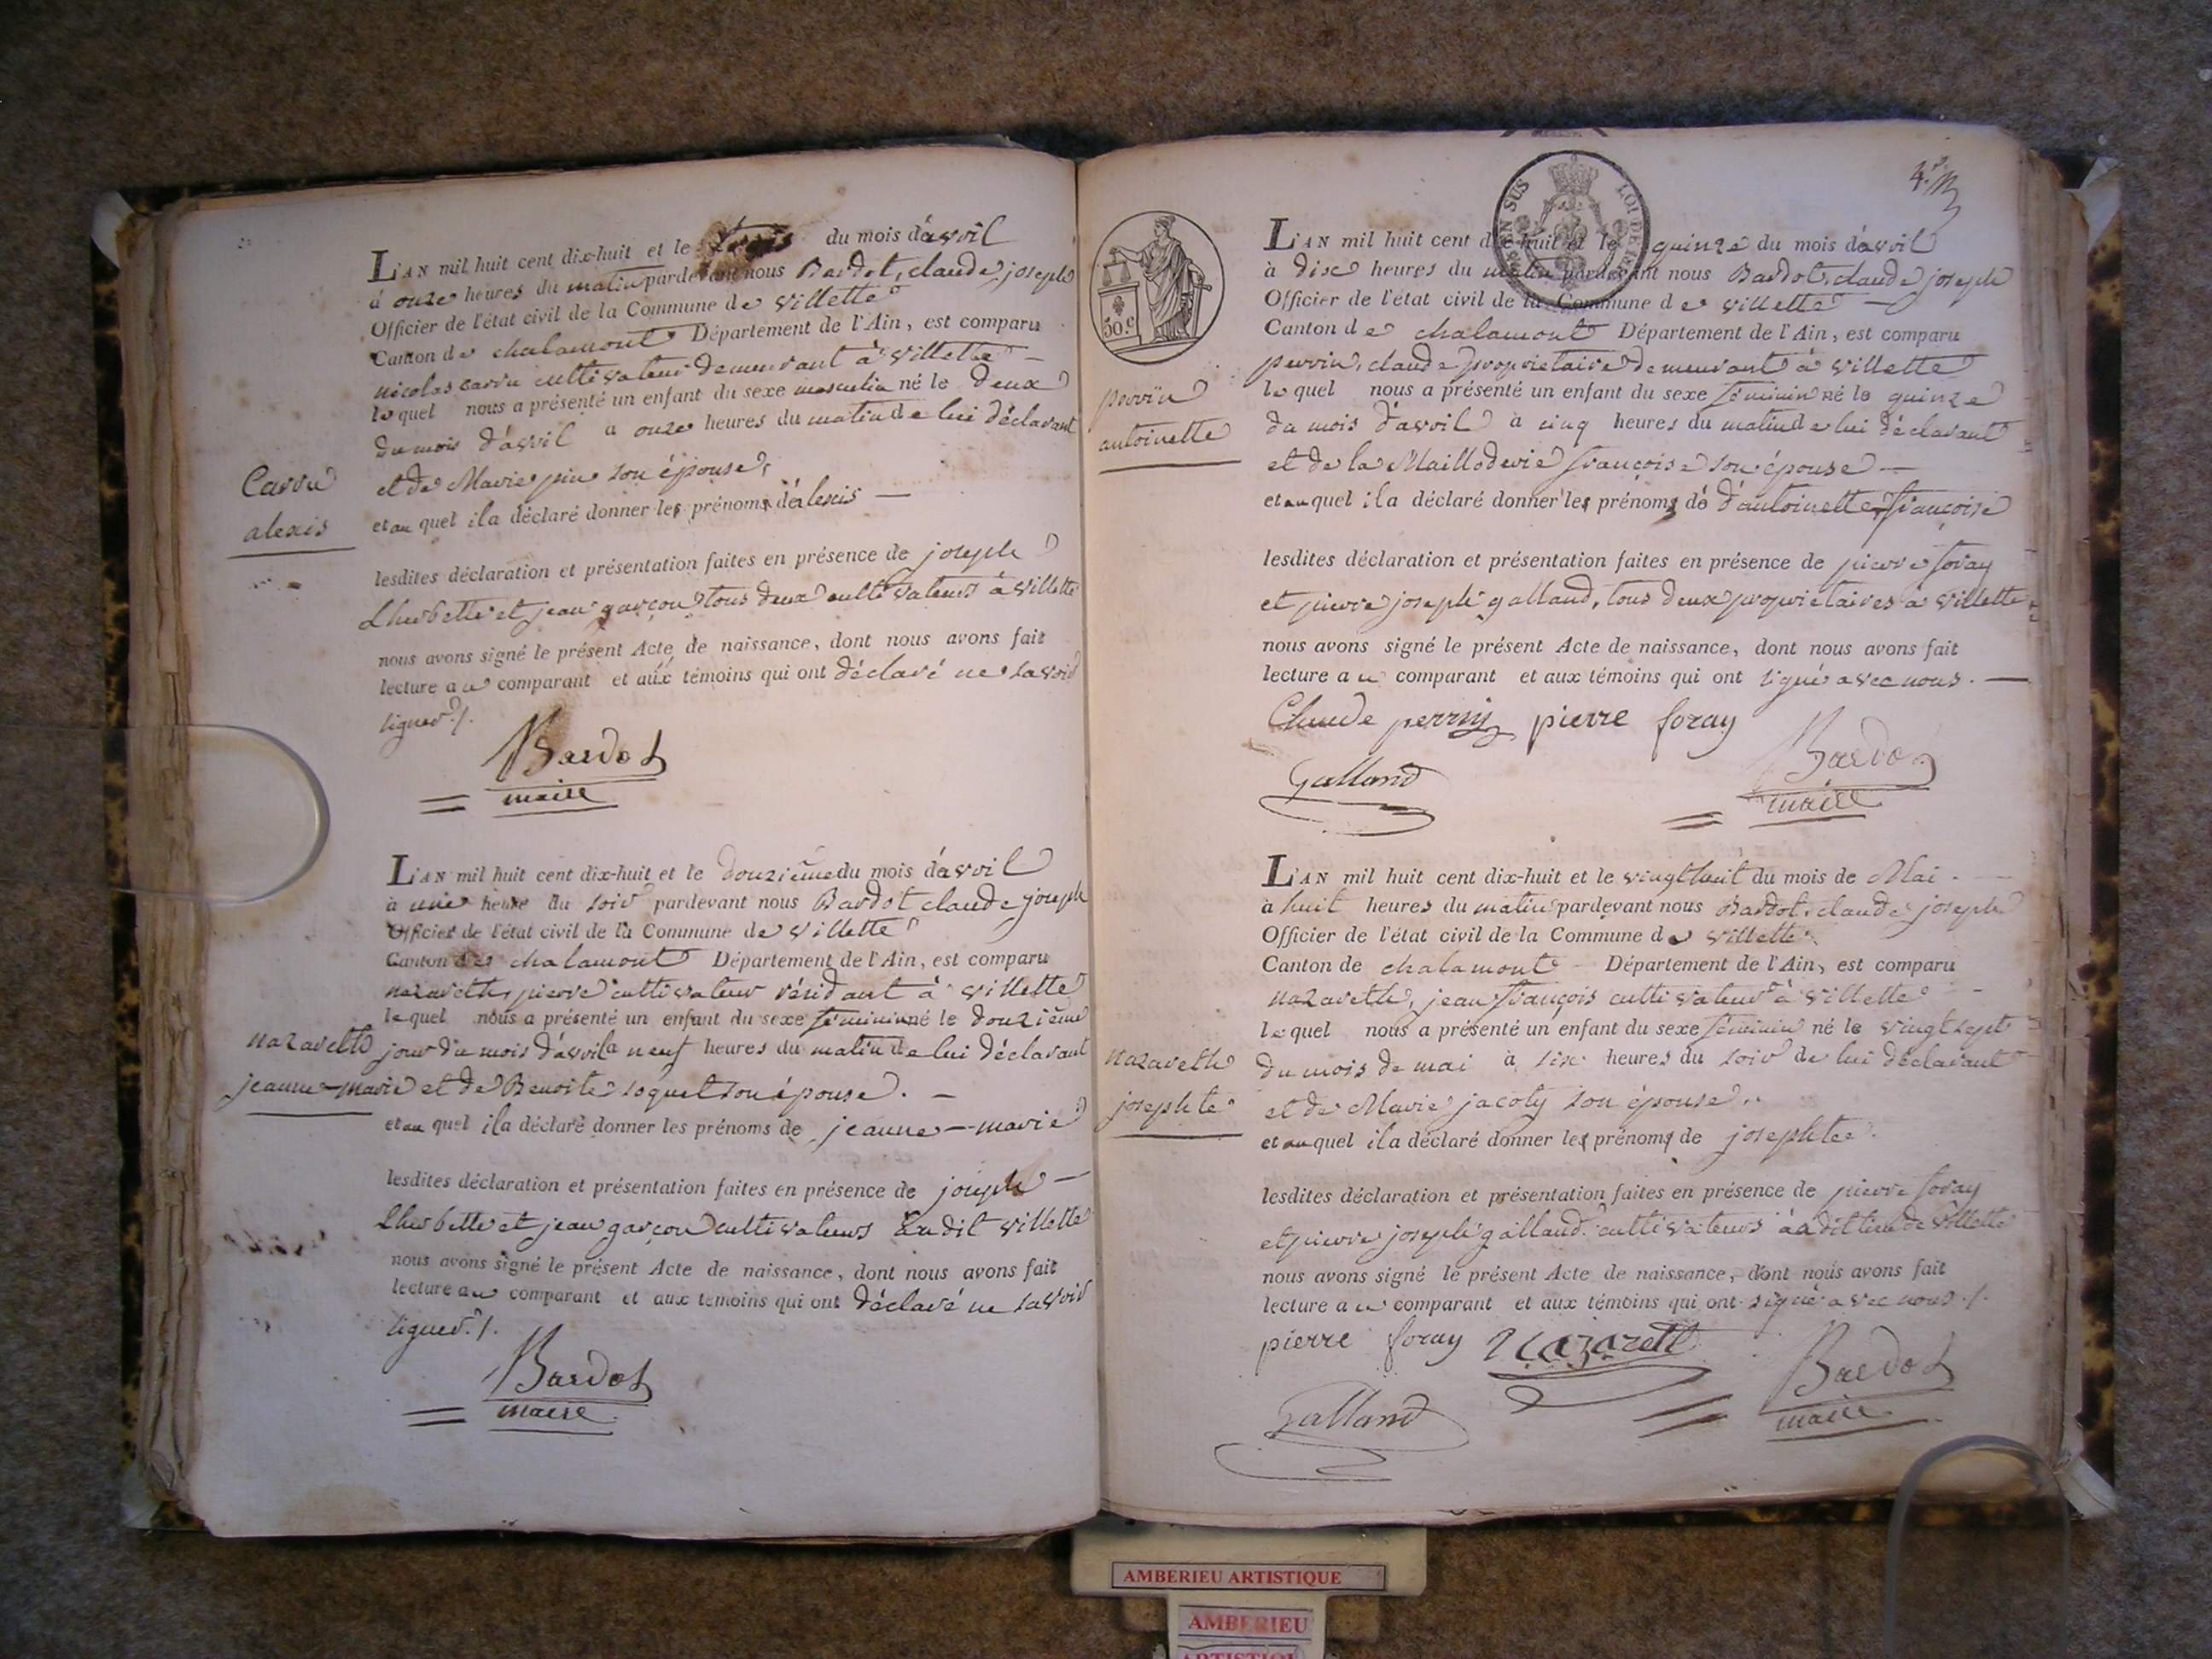 L'AN mil huit cent dix-huit et le du mois d'avril
à onze heures du matin pardevant nous Bardot, claude joseph
Officier de l'état civil de la Commune de villette
Canton de chalamont Département de l'Ain, est comparu
nicolas carru cultivateur demeurant à villette
lequel nous a présenté un enfant du sexe masculin né le deux
du mois d'avril à onze heures du matin de lui déclarant
et de Marie son épouse,
et au quel il a déclaré donner les prénoms d'alexis
Carru
alexis
lesdites déclaration et présentation faites en présence de joseph
Lherbette et jean garçon tous deux cultivateurs à villette
nous avons signé le présent Acte de naissance, dont nous avons fait
lecture au comparant et aux témoins qui ont déclaré ne savoir
signer ./.
Bardot
maire
L'AN mil huit cent dix-huit et le douzième du mois d'avril
à une heure du soir pardevant nous Bardot claude joseph
Officier de l'état civil de la Commune de villette
Canton de chalamont Département de l'Ain, est comparu
nazareth, pierre cultivateur résidant à villette
lequel nous a présenté un enfant du sexe féminin né le douzième
jour du mois d'avril à neuf heures du matin de lui déclarant
et de Benoite soquet son épouse.
nazareth
jeanne-marie
et au quel il a déclaré donner les prénoms de jeanne-marie
lesdites déclaration et présentation faites en présence de joseph
Lherbette et jean garçon cultivateurs audit villette
nous avons signé le présent Acte de naissance, dont nous avons fait
lecture au comparant et aux témoins qui ont déclaré ne savoir
signer ./.
Bardot
maire
4.e
30 c
L'AN mil huit cent dix-huit et le quinze du mois d'avril
à dix heures du matin pardevant nous Bardot, claude joseph
Officier de l'état civil de la Commune de villette
Canton de chalamont Département de l'Ain, est comparu
perrin, claude propriétaire demeurant à villette
lequel nous a présenté un enfant du sexe féminin né le quinze
du mois d'avril à cinq heures du matin de lui déclarant
et de la Mailloderie françoise son épouse
et au quel il a déclaré donner les prénoms de d'antoinette françoise
perrin
antoinette
lesdites déclaration et présentation faites en présence de pierre foray
et pierre joseph galland, tous deux propriétaires a villette
nous avons signé le présent Acte de naissance, dont nous avons fait
lecture au comparant et aux témoins qui ont signé avec nous.
Claude perrin pierre foray
Galland
Bardot
maire
L'AN mil huit cent dix-huit et le vingt huit du mois de Mai
à huit heures du matin pardevant nous Bardot, claude joseph
Officier de l'état civil de la Commune de villette
Canton de chalamont Département de l'Ain, est comparu
nazareth, jean françois cultivateur à villette
lequel nous a présenté un enfant du sexe féminin né le vingt sept
du mois de mai à six heures du soir de lui déclarant
et de Marie jacoty son épouse.
et au quel il a déclaré donner les prénoms de josephte
nazareth
josephte
lesdites déclaration et présentation faites en présence de pierre foray
et pierre joseph galland cultivateurs audit lieu de villette
nous avons signé le présent Acte de naissance, dont nous avons fait
lecture au comparant et aux témoins qui ont signé avec nous ./.
pierre foray nazareth
Galland
Bardot
maire
AMBERIEU ARTISTIQUE
AMBERIEU
ARTISTIQUE